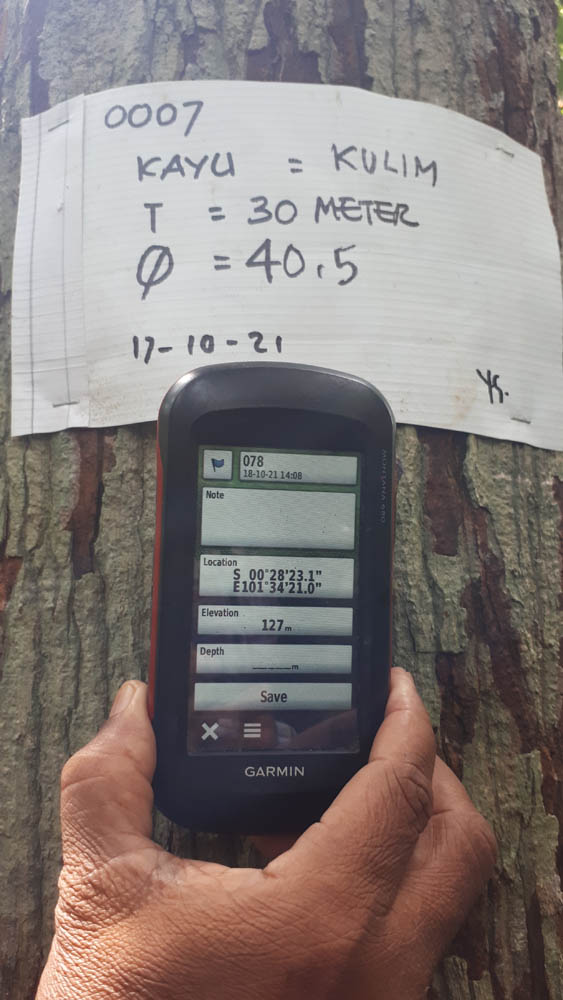 0007
KAYU = KULIM
T = 30 METER
Ø = 40,5
17-10-21
YS.
078
18-10-21 14:08
Note
Location
S 00°28'23.1"
E101°34'21.0"
Elevation
127m
Depth
_____m
Save
GARMIN
MONTANA 680